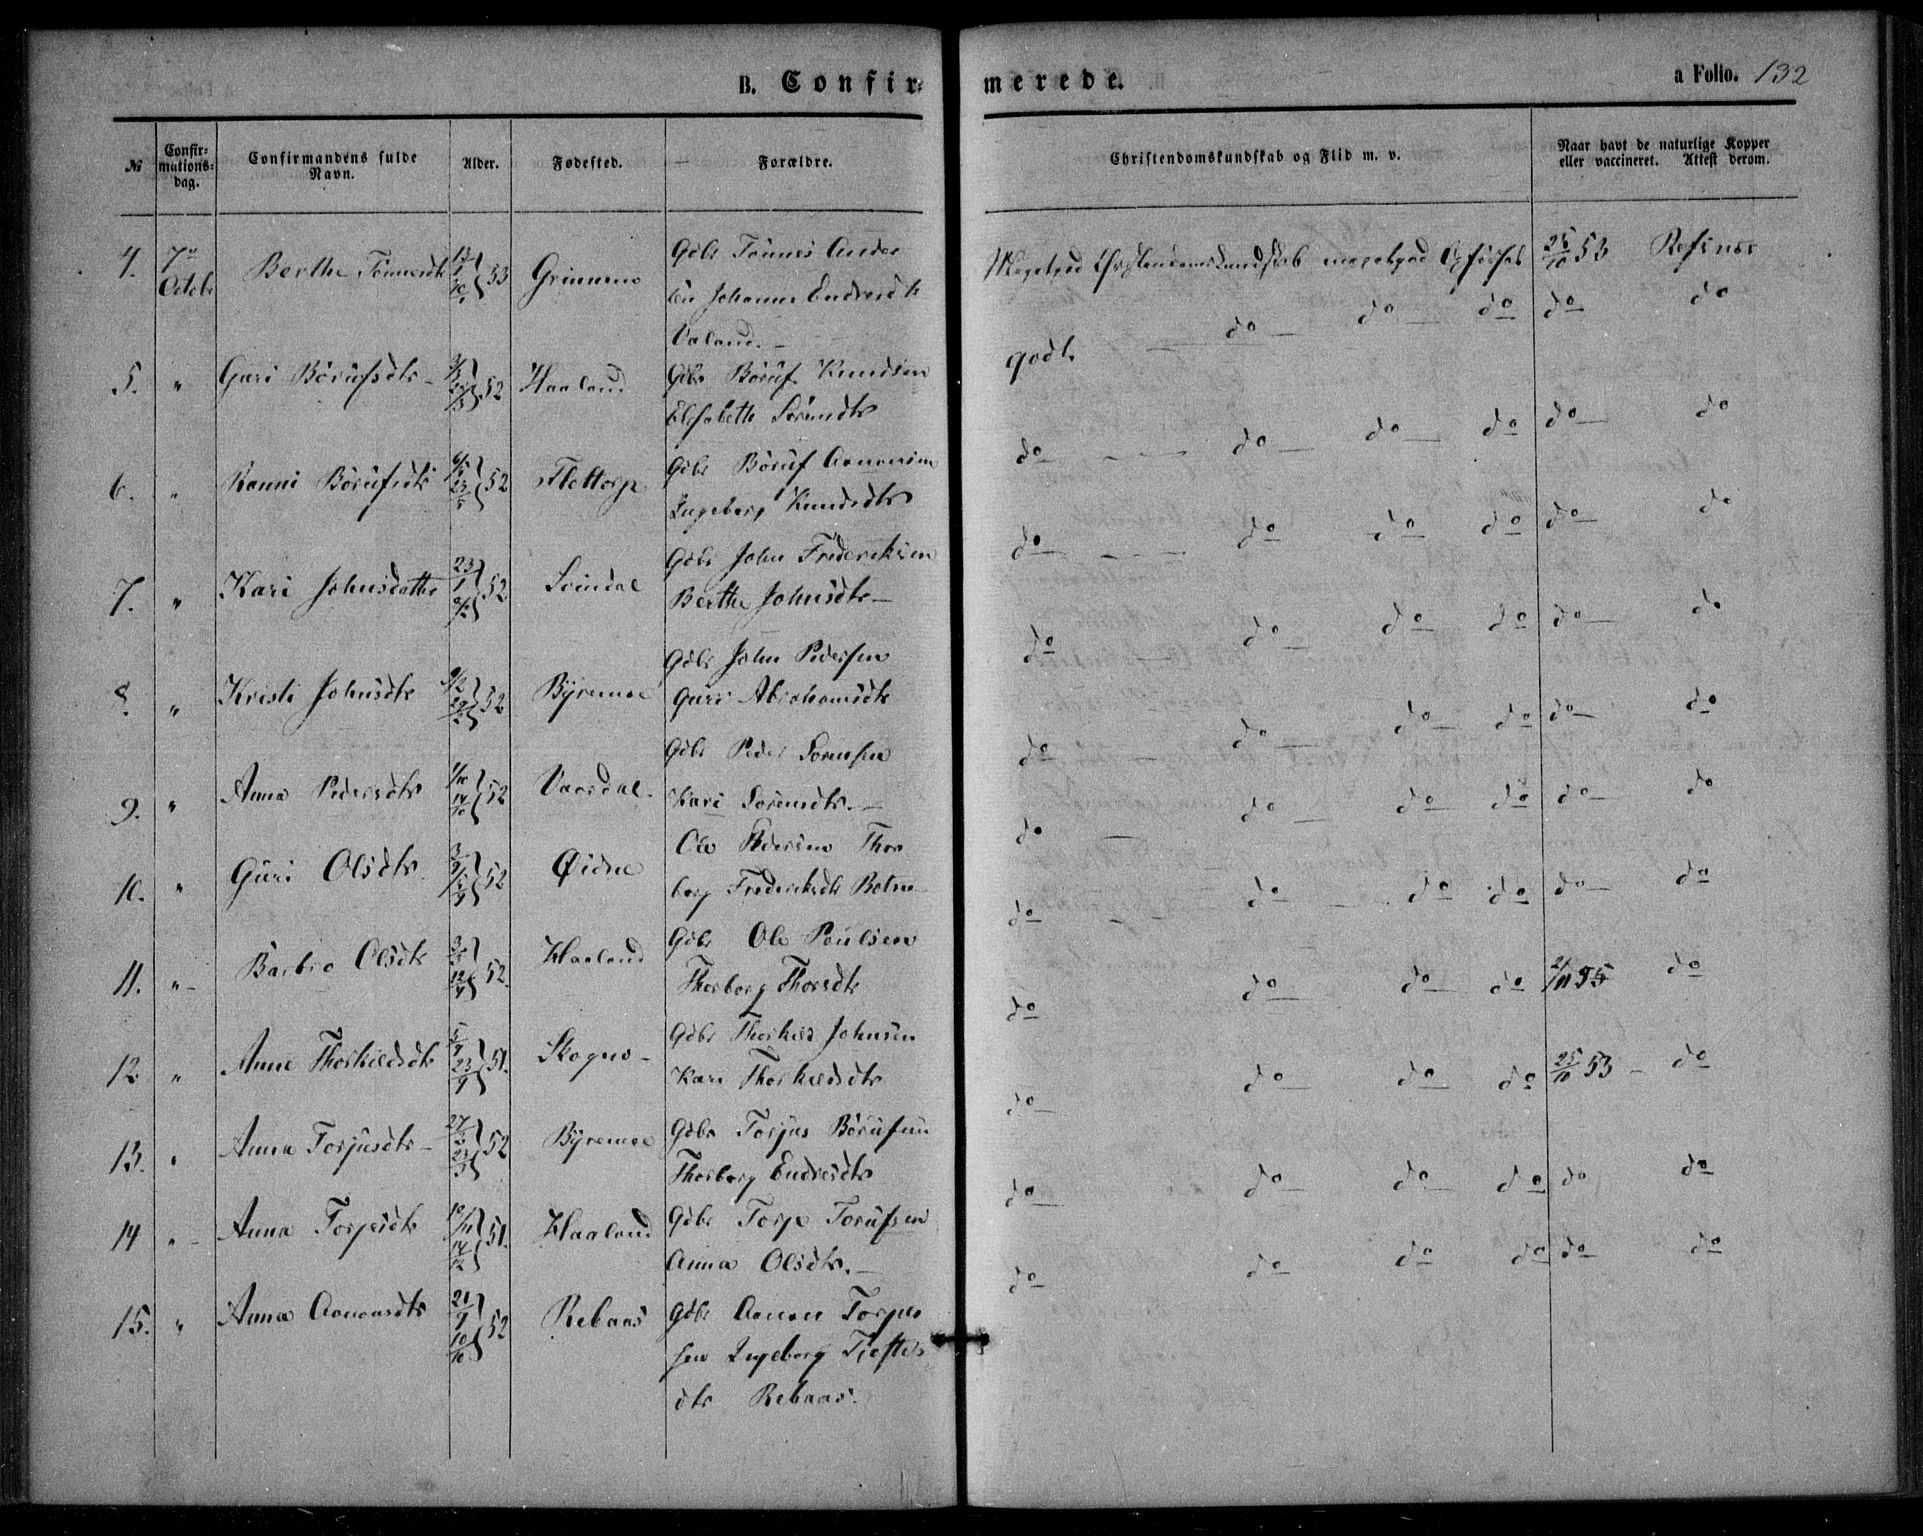 B. Confir-
merede.
a Folio. 132
№
Confir-
mations-
dag.
Confirmandens fulde
Navn.
Alder.
Fødested.
Forældre.
Christendomskundskab og Flid m. v.
Naar havt de naturlige Kopper
eller vaccineret. Attest derom.
4. 7de Octob Berthe Tønnesdtr 53 Grimme Gdbr Tønnes Ander
sen Johanne Endresdtr
Valand. —
Megetgod Christendomskundskab megetgod Opførsel 25/10 53 Refsnes
5. " Guri Børufsdtr — 52 Haaland Gdbr Børuf Knudsen
Elisabeth Sørensdtr
godt. — do — do — do do — do
6. " Ranni Børufsdtr 52 Flottorp Gdbr Børuf Aanonsen
Ingeborg Knudsdtr
do — do — do — do do — do
7. " Kari Johnsdatter 23/1 52 Svindal Gdbr John Frederiksen
Berthe Johnsdtr —
do — do — do do do — do
8. " Kristi Johnsdtr 52 Byremoe Gdbr John Pedersen
Guri Abrahamsdtr
do — do — do — do do — do
9. " Anna Pedersdtr 52 Vaardal. Gdbr Peder Sørensen
Kari Sørensdtr. —
do — do — do — do do — do
10. " Guri Olsdtr 52 Øidne Ole Pedersen Thor
borg Frederiksdtr Botne
do — do — do — do do — do
11. " — Barbro Olsdtr 52. Haaland Gdbr Ole Poulsen
Thorborg Thorsdtr
do — do — do — do do — do
12 " Anne Thorkildsdtr 5/9 23/9 51. Skogno — Gdbr Thorkild Johnsen
Kari Thorkildsdtr
do do — do — do 2/11 55 do
13. " Anna Torjusdtr — 52 Byremoe Gdbr Torjus Børufsen
Thorborg Endresdtr
do — do — do — do 25/10 53 — do
14 " — Anna Torjesdtr 51. Haaland Gdbr Torje Torufsen
Anna Olsdtr. —
do — do — do — do do do
15. " Anna Aanonsdtr 21/9 10/10 52 Rebaas Gdbr Aanon Torjus
sen Ingeborg
dtr Rebaas.
do do — do do do — do